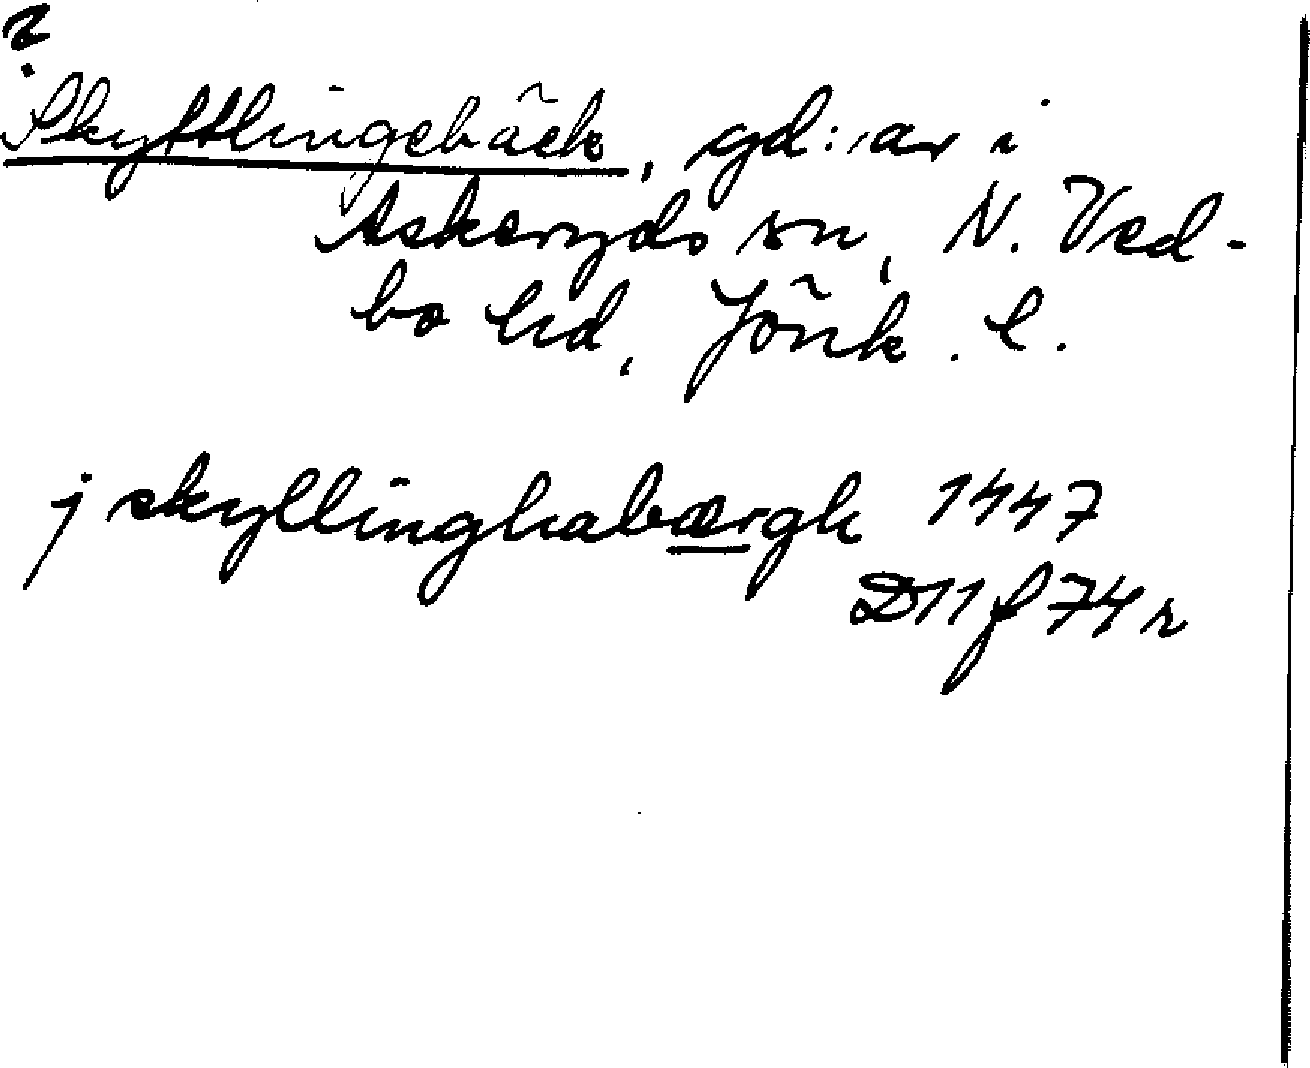 ?
Skyttlingebäck, gd:ar i
Askeryds sn, N. Ved-
bo hd, Jönk. l.
j skyllinghabærgh 1447
D11 f 74 r